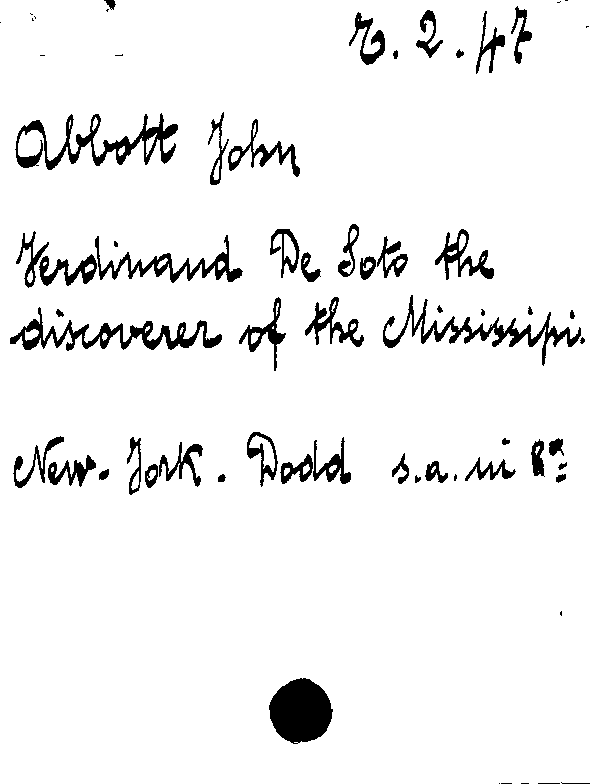 7.2.47
Abbott John
Ferdinand De Soto the
discoverer of the Mississipi.
New-York. Dodd s.a. in 8º